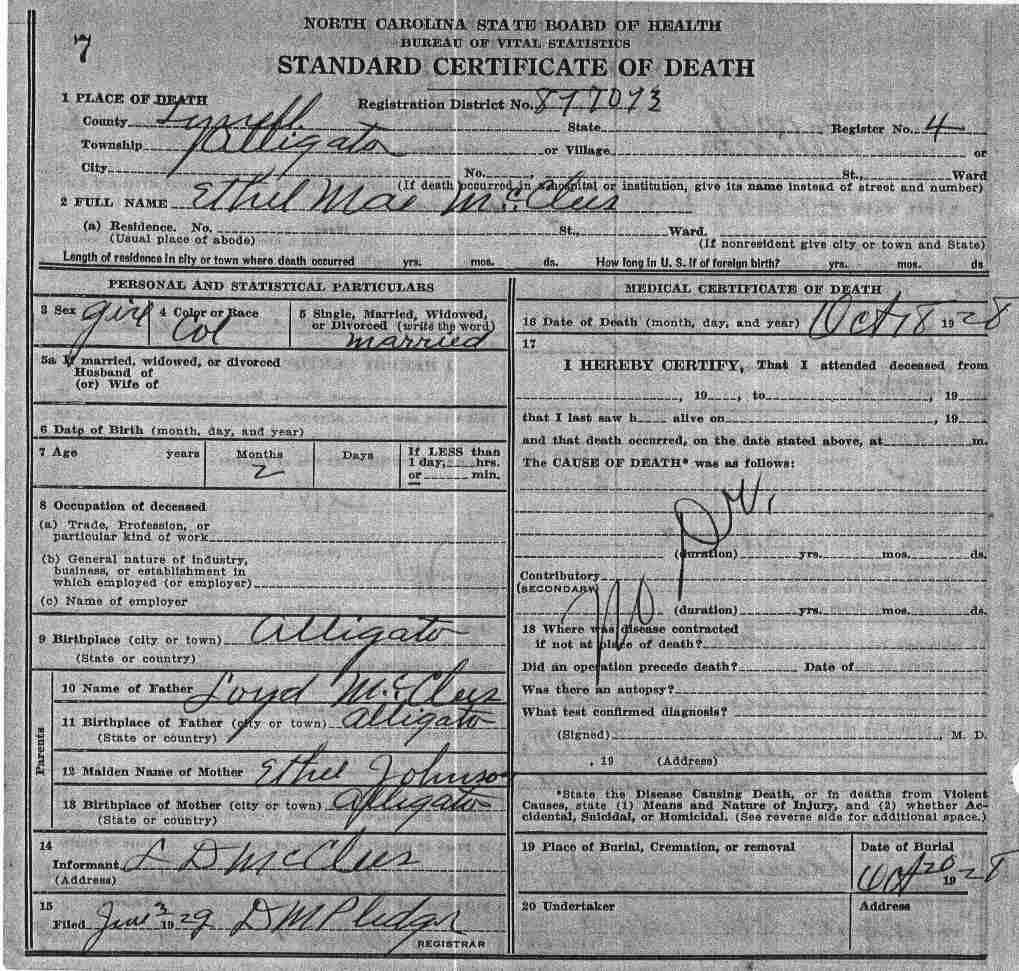 7
NORTH CAROLINA STATE BOARD OF HEALTH
BUREAU OF VITAL STATISTICS
STANDARD CERTIFICATE OF DEATH
1 PLACE OF DEATH
Registration District No. 8977073
County Tyrrell State Register No. 4
Township Alligator or Village or
City No. , St., Ward
(If death occurred in a hospital or institution, give its name instead of street and number)
2 FULL NAME Ethel Mae McClees
(a) Residence. No. St., Ward.
(Usual place of abode) (If nonresident give city or town and State)
Length of residence in city or town where death occurred yrs. mos. ds. How long in U. S. if of foreign birth? yrs. mos. ds
PERSONAL AND STATISTICAL PARTICULARS
3 Sex girl 4 Color or Race Col 5 Single, Married, Widowed, or Divorced (write the word) married
5a If married, widowed, or divorced
Husband of
(or) Wife of
6 Date of Birth (month, day, and year)
7 Age years Months 2 Days If LESS than 1 day, hrs. or min.
8 Occupation of deceased
(a) Trade, Profession, or
particular kind of work
(b) General nature of industry,
business, or establishment in
which employed (or employer)
(c) Name of employer
9 Birthplace (city or town) Alligato
(State or country)
Parents
10 Name of Father Loyd McClees
11 Birthplace of Father (city or town) Alligato
(State or country)
12 Maiden Name of Mother Ethel Johnson
13 Birthplace of Mother (city or town) Alligato
(State or country)
14
Informant L D McClees
(Address)
15
Filed June 3 1929 D M Pledger
REGISTRAR
MEDICAL CERTIFICATE OF DEATH
16 Date of Death (month, day, and year) Oct 18 1928
17
I HEREBY CERTIFY, That I attended deceased from
, 19 , to , 19
that I last saw h alive on , 19
and that death occurred, on the date stated above, at m.
The CAUSE OF DEATH* was as follows:
No Dr.
(duration) yrs. mos. ds.
Contributory
(SECONDARY)
(duration) yrs. mos. ds.
18 Where was disease contracted
if not at place of death?
Did an operation precede death? Date of
Was there an autopsy?
What test confirmed diagnosis?
(Signed) , M. D.
, 19 (Address)
*State the Disease Causing Death, or in deaths from Violent
Causes, state (1) Means and Nature of Injury, and (2) whether Ac-
cidental, Suicidal, or Homicidal. (See reverse side for additional space.)
19 Place of Burial, Cremation, or removal Date of Burial
Oct 20 1928
20 Undertaker Address